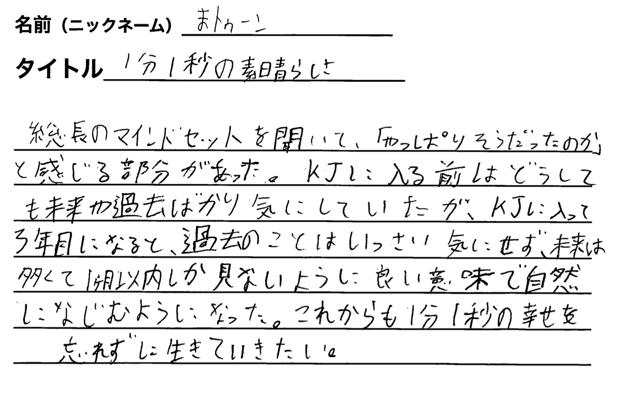 名前（ニックネーム） まトゥーン
タイトル 1分1秒の素晴らしさ
総長のマインドセットを聞いて、「やっぱりそうだったのか」
と感じる部分があった。KJに入る前はどうして
も未来や過去ばかり気にしていたが、KJに入って
3年目になると、過去のことはいっさい気にせず、未来は
多くて1ヶ月以内しか見ないように良い意味で自然
になじむようになった。これからも1分1秒の幸せを
忘れずに生きていきたい。